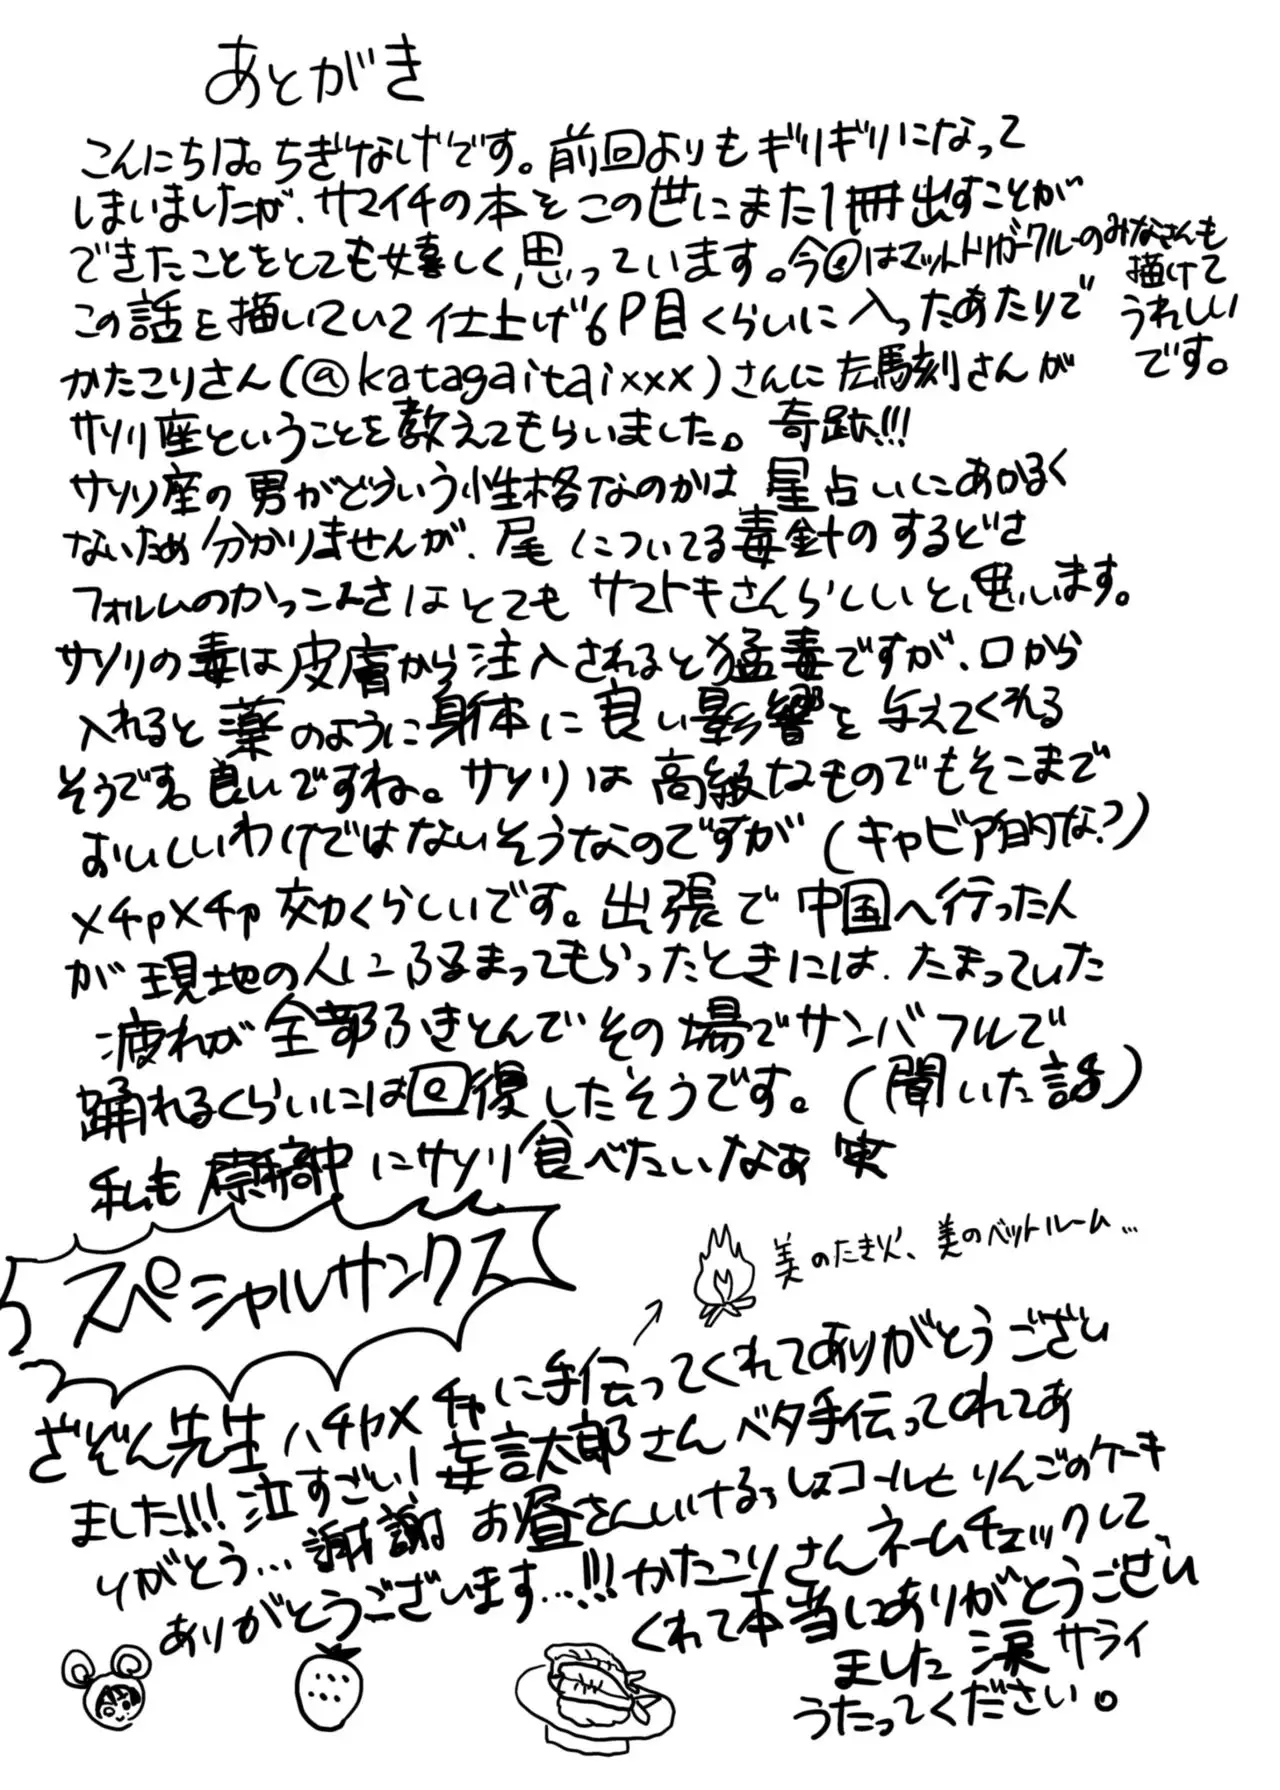 あとがき
こんにちは。ちぎなげです。前回よりもギリギリになって
しまいましたが、サマイチの本をこの世にまた1冊出すことが
できたことをとても嬉しく思っています。今回はマットトリガークルーのみなさんも
描けて
うれしい
です。
この話を描いていて仕上げ6P目くらいに入ったあたりで
かたこりさん(@katagaitaixxx)さんに左馬刻さんが
サソリ座ということを教えてもらいました。奇跡!!!
サソリ座の男がどういう性格なのかは星占いにあかるく
ないため分かりませんが、尾についてる毒針のするどさ
フォルムのかっこよさはとてもサマトキさんらしいと思います。
サソリの毒は皮膚から注入されると猛毒ですが、口から
入れると薬のように身体に良い影響を与えてくれる
そうです。良いですね。サソリは高級なものでもそこまで
おいしいわけではないそうなのですが(キャビア的な?)
メチャメチャ効くらしいです。出張で中国へ行った人
が現地の人にふるまってもらったときには、たまっていた
疲れが全部ふきとんでその場でサンバフルで
踊れるくらいには回復したそうです。(聞いた話)
私も原稿中にサソリ食べたいなあ 笑
スペシャルサンクス
美のたき火、美のベットルーム…
ざぞん先生ハチャメチャに手伝ってくれてありがとうござい
ました!!!泣すごい!妄言太郎さんベタ手伝ってくれてあ
りがとう…謝謝 お昼さんいけるっしょコールとりんごのケーキ
ありがとうございます…!!!かたこりさんネームチェックして
くれて本当にありがとうござい
ました涙サライ
うたってください。